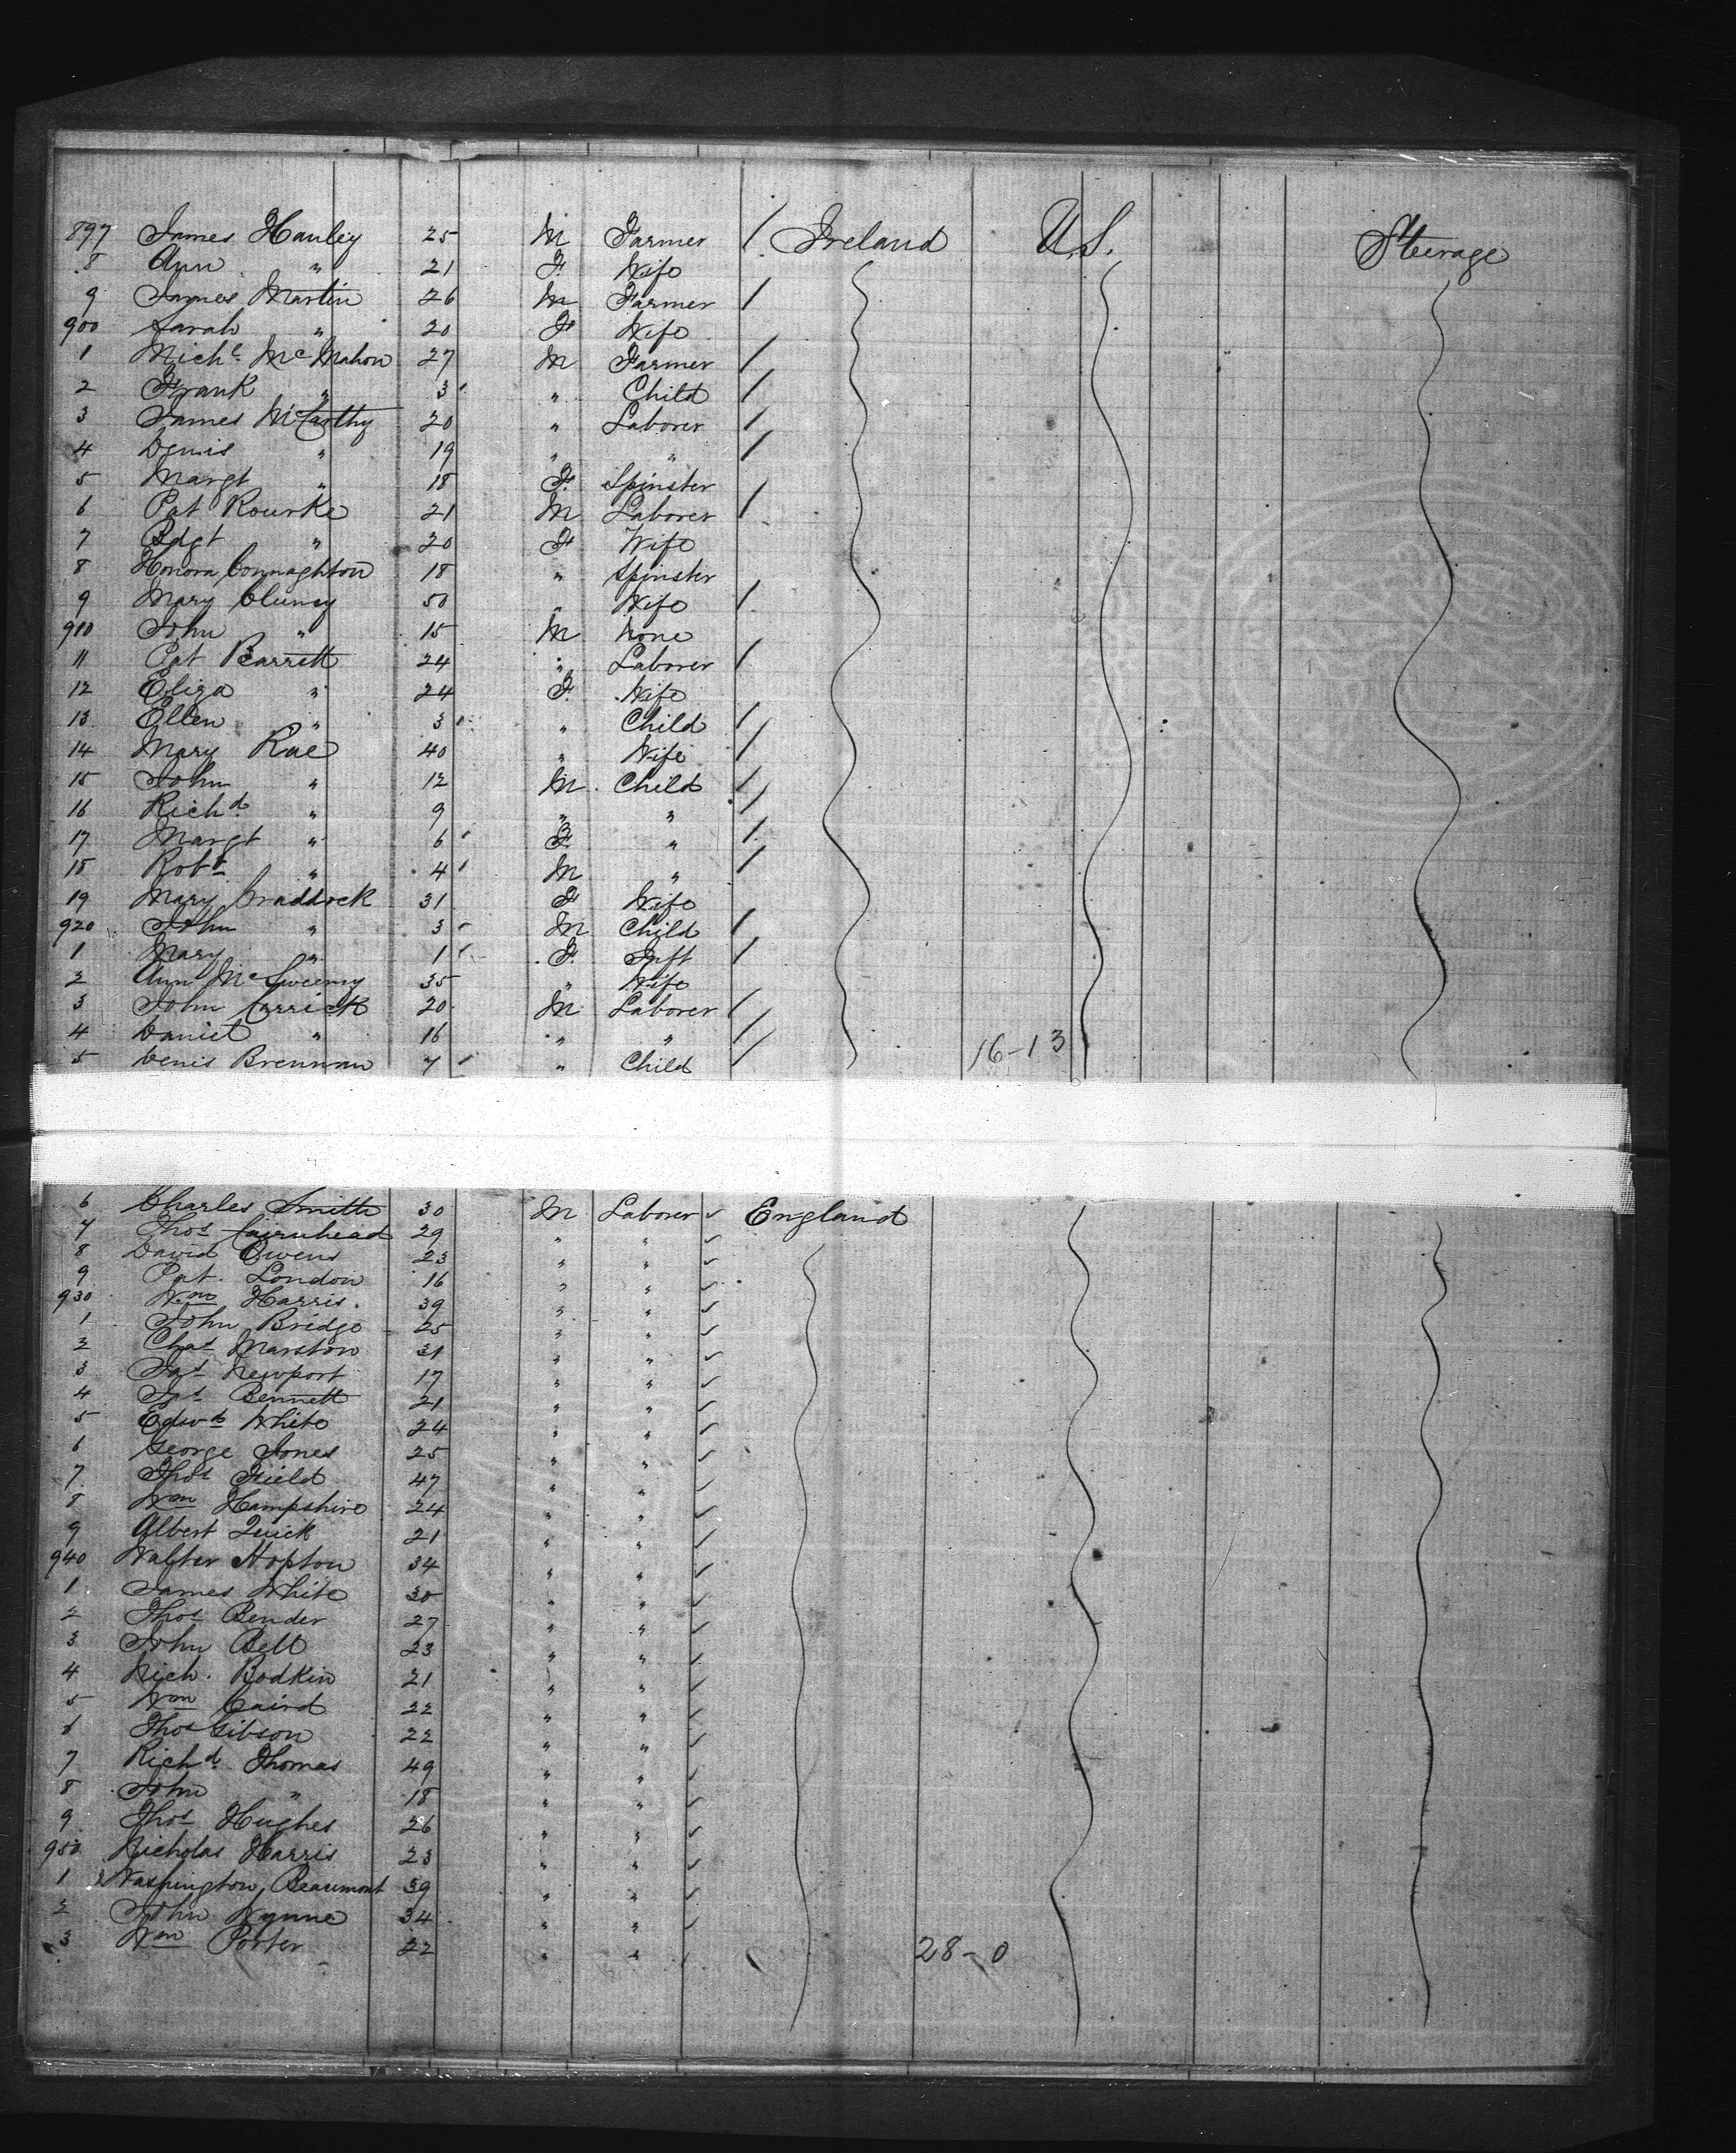 897 James Hanley 25 M Farmer / Ireland U.S. Steerage
8 Ann " 21 F. Wife
9 James Martin 26 M Farmer /
900 Sarah " 20 F Wife
1 Michl McMahon 27 M Farmer /
2 Frank " 3 " Child /
3 James McCarthy 20 " Laborer /
4 Denis " 19 " " /
5 Margt " 18 F. Spinster
6 Pat Rourke 21 M Laborer /
7 Bdgt " 20 F Wife
8 Honora Connaghton 18 " Spinster
9 Mary Clunsy 50 " Wife /
910 John " 15 M None
11 Pat Barrett 24 " Laborer /
12 Eliza " 24 F. Wife
13 Ellen " 3 " Child /
14 Mary Rae 40 " Wife /
15 John " 12 M Child /
16 Richd " 9 " " /
17 Margt " 6 F. " /
18 Robt " 4 M " /
19 Mary Craddock 31 F Wife
920 John " 3 M Child /
1 Mary " 1 F. Inft /
2 Ann McSweeny 35 " Wife
3 John Carrick 20 M Laborer /
4 Daniel " 16 " " / 16-13
5 Denis Brennan 7 " Child /
6 Charles Smith 30 M Laborer ✓ England
7 Thos Cairnhead 29 " " ✓
8 David Owens 23 " " ✓
9 Pat. London 16 " " ✓
930 Wm Harris. 39 " " ✓
1 John Bridge 25 " " ✓
2 Chas Marston 31 " " ✓
3 Jas Newport 17 " " ✓
4 Jas Bennett 21 " " ✓
5 Edwd White 24 " " ✓
6 George Jones 25 " " ✓
7 Thos Field 47 " " ✓
8 Wm Hampshire 24 " " ✓
9 Albert Quick 21 " " ✓
940 Walter Hopton 34 " " ✓
1 James White 30 " " ✓
2 Thos Bender 27 " " ✓
3 John Bell 23 " " ✓
4 Mich. Bodkin 21 " " ✓
5 Wm Caird 22 " " ✓
6 Thos Gibson 22 " " ✓
7 Richd Thomas 49 " " ✓
8 John " 18 " " ✓
9 Thos Hughes 26 " " ✓
950 Nicholas Harris 23 " " ✓
1 Washington Beaumont 39 " " ✓
2 John Wynne 34 " " ✓
3 Wm Porter 22 " " 28-0